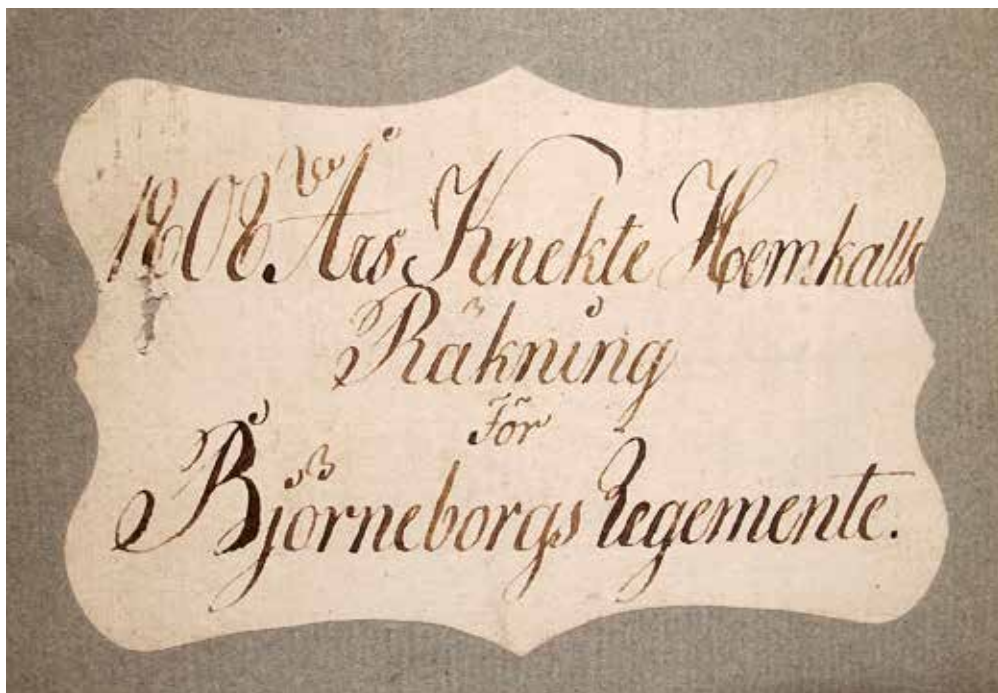 1808 Års Knekte Hemkalls
Räkning
För
Björneborgs Regemente.